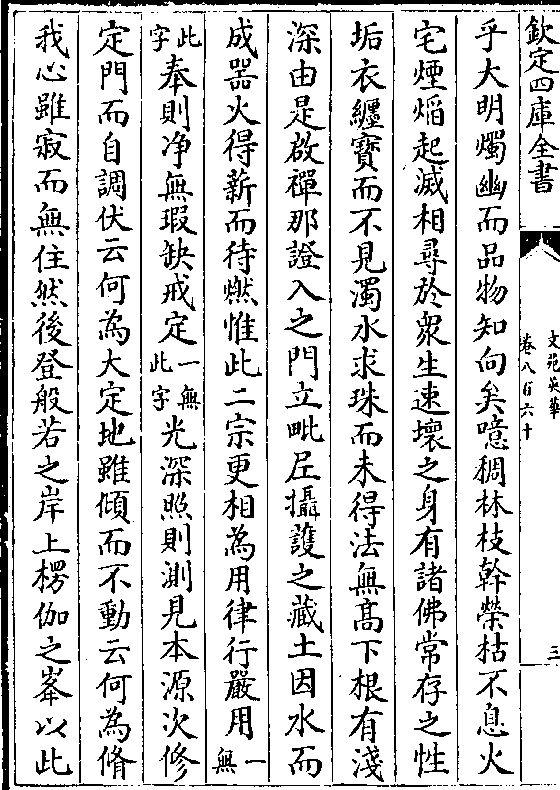 欽定四庫全書
文苑英華
卷八百六十
三
乎大明燭幽而品物知向矣噫稠林枝幹榮枯不息火
宅煙熖起滅相尋於衆生速壞之身有諸佛常存之性
垢衣纒寶而不見濁水求珠而未得法無髙下根有淺
深由是啟禪那證入之門立毗𡰱攝䕶之藏土因水而
成器火得薪而待燃惟此二宗更相為用律行嚴用一無
此字奉則净無瑕缺戒定一無此字光深照則測見本源次修
定門而自調伏云何為大定地雖傾而不動云何為脩
我心雖寂而無住然後登般若之岸上楞伽之峯以此